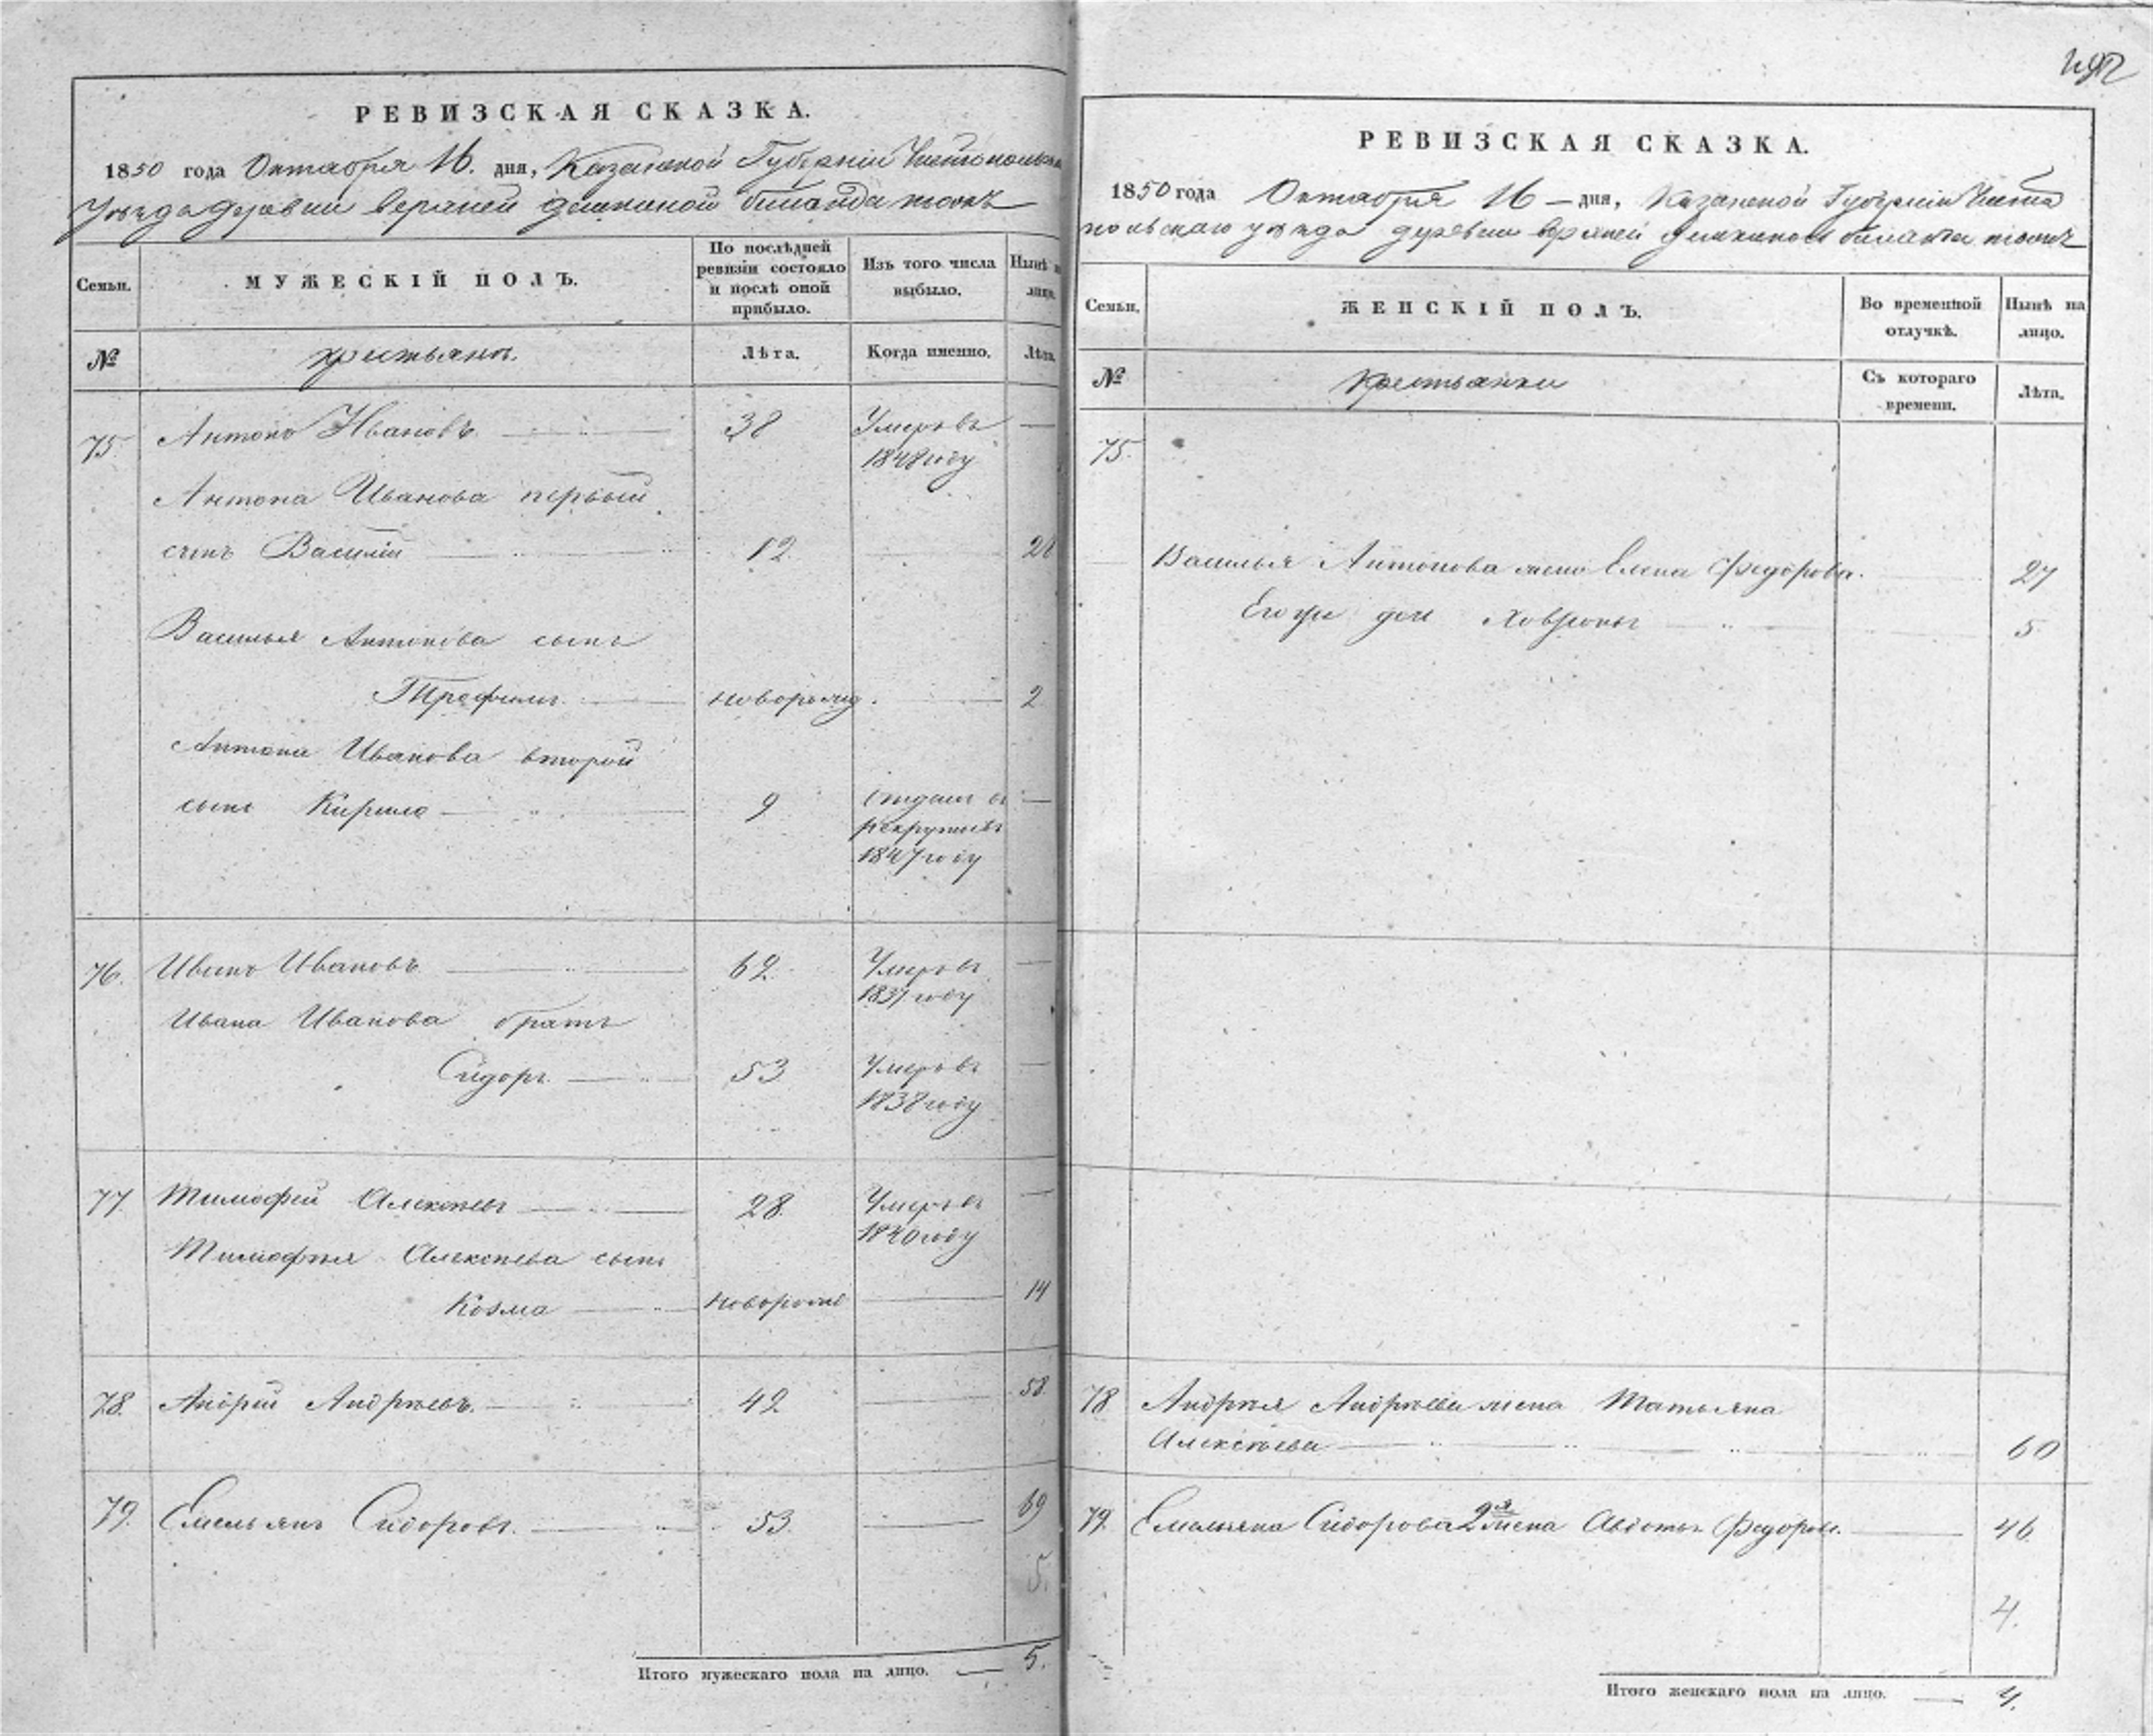 РЕВИЗСКАЯ СКАЗКА.
1850 года Октября 16. дня, Казанской Губернiи Чистопольска
Уѣзда деревни верхней
Семьи.
МУЖЕСКIЙ ПОЛЪ.
По послѣдней ревизiи состояло и послѣ оной прибыло.
Изъ того числа выбыло.
Нынѣ на лицо.
№
крестьянъ.
Лѣта.
Когда именно.
Лѣта.
75 Антонъ Ивановъ 38 Умеръ въ —
1848 году
Антона Иванова первый
сынъ Василiй 12. 28
Василья Антонова сынъ
Трофимъ новорожд. 2
Антона Иванова второй
сынъ Кирила 9 Отданъ въ —
рекруты въ
1847 году
76. Иванъ Ивановъ 62. Умеръ въ —
1837 году
Ивана Иванова братъ
Сидоръ 53 Умеръ въ —
1838 году
77 Тимофей Алексѣевъ 28. Умеръ въ —
1840 году
Тимофѣя Алексѣева сынъ
Козма новорожд 14
78. Андрей Андрѣевъ. 42 — 58
79. Емельянъ Сидоровъ. 53. — 69
5.
Итого мужескаго пола на лицо. — 5.
РЕВИЗСКАЯ СКАЗКА.
1850 года Октября 16 — дня, Казанской Губернiи Чисто
польскаго уѣзда деревни верхней
Семьи.
ЖЕНСКIЙ ПОЛЪ.
Во временной отлучкѣ.
Нынѣ на лицо.
№
Крестьянки
Съ котораго времени.
Лѣта.
75.
Василья Антонова жена Елена Федорова. 27
Его же доч Ховронья 5
78 Андрѣя Андрѣева жена Татьяна
Алексѣева 60
79. Емельяна Сидорова 2я жена Авдотья Федорова. 46
4.
Итого женскаго пола на лицо. — 4.